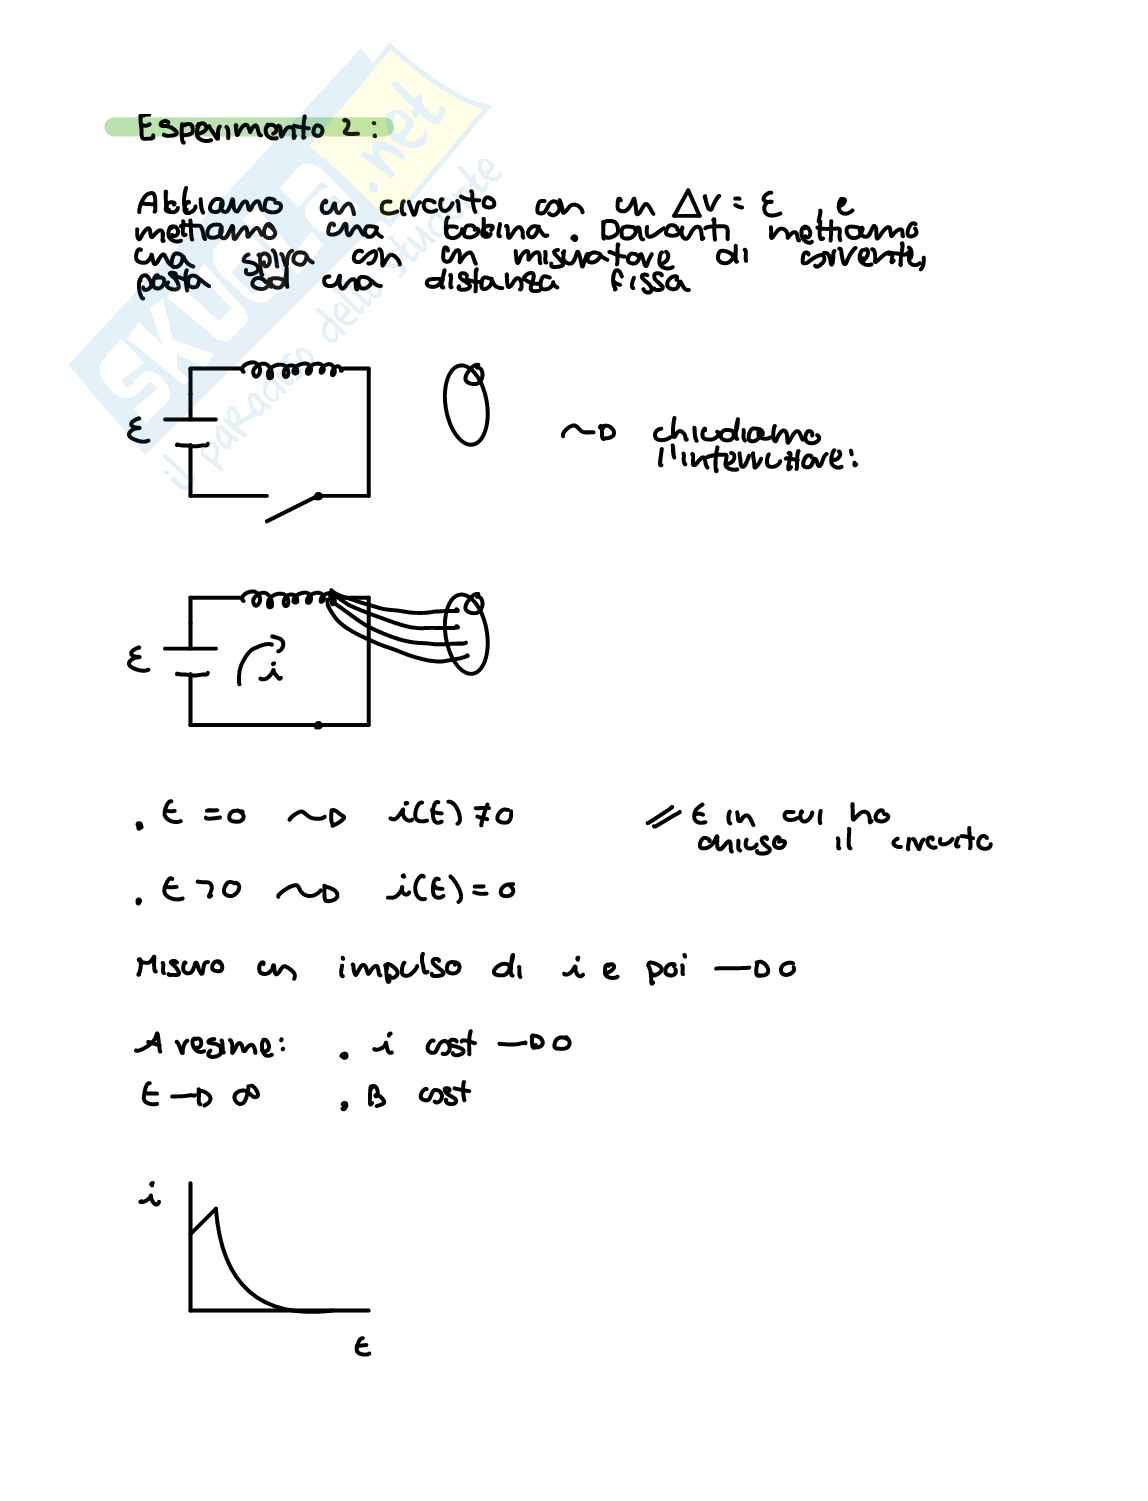 Esperimento 2:
Abbiamo un circuito con un ΔV = ε, e
mettiamo una bobina. Davanti mettiamo
una spira con un misuratore di corrente,
posta ad una distanza fissa
SKUOLA.net
il paradiso dello studente
ε
~> chiudiamo
l'interruttore:
ε
i
. t = 0 ~> i(t) ≠ 0 // t in cui ho
chiuso il circuito
. t > 0 ~> i(t) = 0
Misuro un impulso di i e poi → 0
A regime: . i cost → 0
t → ∞ . B cost
i
t